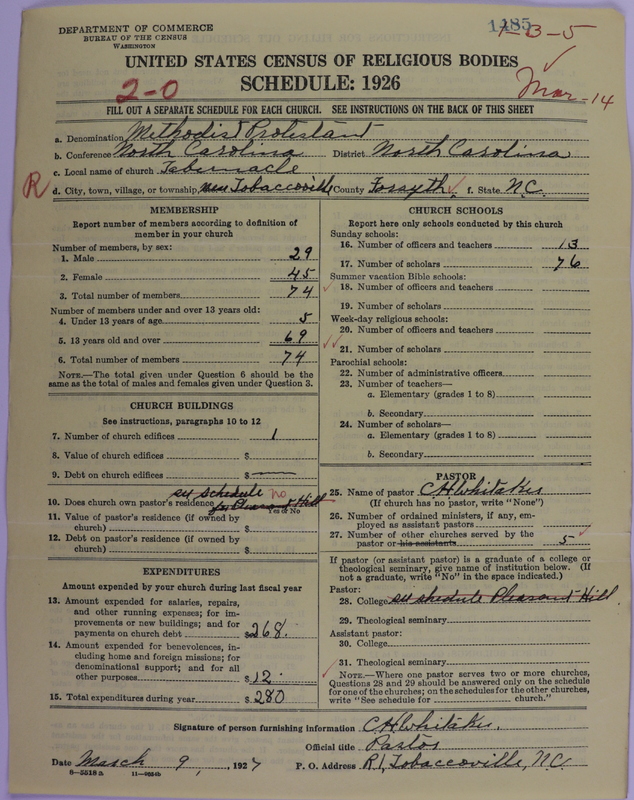 DEPARTMENT OF COMMERCE
BUREAU OF THE CENSUS
WASHINGTON
1485
1-3-5
UNITED STATES CENSUS OF RELIGIOUS BODIES
SCHEDULE: 1926
2-0
Mar-14
FILL OUT A SEPARATE SCHEDULE FOR EACH CHURCH. SEE INSTRUCTIONS ON THE BACK OF THIS SHEET
a. Denomination Methodist Protestant
b. Conference North Carolina District North Carolina
c. Local name of church Tabernacle
R d. City, town, village, or township near Tobaccoville County Forsyth f. State N.C.
MEMBERSHIP
Report number of members according to definition of
member in your church
Number of members, by sex:
1. Male 29
2. Female 45
3. Total number of members 74
Number of members under and over 13 years old:
4. Under 13 years of age 5
5. 13 years old and over 69
6. Total number of members 74
NOTE.—The total given under Question 6 should be the
same as the total of males and females given under Question 3.
CHURCH BUILDINGS
See instructions, paragraphs 10 to 12
7. Number of church edifices 1
8. Value of church edifices $
9. Debt on church edifices $ —
see schedule no
10. Does church own pastor's residence for Pleasant Hill
Yes or No
11. Value of pastor's residence (if owned by
church) $
12. Debt on pastor's residence (if owned by
church) $
EXPENDITURES
Amount expended by your church during last fiscal year
13. Amount expended for salaries, repairs,
and other running expenses; for im-
provements or new buildings; and for
payments on church debt 268.
14. Amount expended for benevolences, in-
cluding home and foreign missions; for
denominational support; and for all
other purposes $ 12.
15. Total expenditures during year $ 280
CHURCH SCHOOLS
Report here only schools conducted by this church
Sunday schools:
16. Number of officers and teachers 13
17. Number of scholars 76
Summer vacation Bible schools:
18. Number of officers and teachers
19. Number of scholars
Week-day religious schools:
20. Number of officers and teachers
21. Number of scholars
Parochial schools:
22. Number of administrative officers
23. Number of teachers—
a. Elementary (grades 1 to 8)
b. Secondary
24. Number of scholars—
a. Elementary (grades 1 to 8)
b. Secondary
PASTOR
25. Name of pastor C H Whitaker
(If church has no pastor, write "None")
26. Number of ordained ministers, if any, em-
ployed as assistant pastors
27. Number of other churches served by the
pastor or his assistants 5
If pastor (or assistant pastor) is a graduate of a college or
theological seminary, give name of institution below. (If
not a graduate, write "No" in the space indicated.)
Pastor:
28. College see schedule Pleasant Hill.
29. Theological seminary
Assistant pastor:
30. College
31. Theological seminary
NOTE.—Where one pastor serves two or more churches,
Questions 28 and 29 should be answered only on the schedule
for one of the churches; on the schedules for the other churches,
write "See schedule for church."
Signature of person furnishing information C H Whitaker.
Official title Pastor
Date March 9, 1927 P. O. Address R1, Tobaccoville, N.C.
8—5518 a 11—9654b